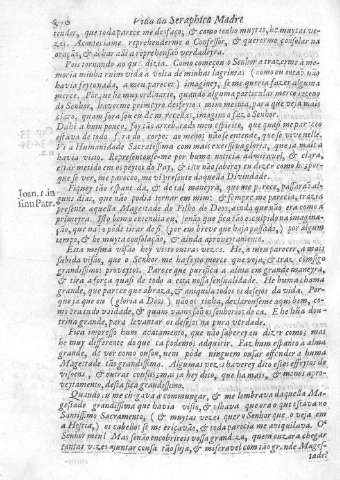 Vida da Seraphica Madre
tendas, que toda parece me desfaço, & como tenho muytas, he muytas ve-
zes. Aconteciame reprehenderme o Confessor, & quererme consolar na
oração, & achar ali a reprehensão verdadeyra.
Pois tornando ao que dizia. Como começou o Senhor a trazerme à me-
moria minha ruim vida à volta de minhas lagrimas (como eu então não
havia feyto nada, a meu parecer) imaginey, se me queria fazer alguma
merce. Porque he muy ordinario, quando alguma particular merce recebo
do Senhor, haverme primeyro desfeyto a mim mesma, para que veja mais
claro, quam fora sou eu de merecellas, imagino as faz o Senhor.
Dahi a hum pouco, foy tão arrebatado meu espirito, que quasi me pareceo
estava de todo fóra do corpo: ao menos não se entende, que se vive nelle.
Vi a Humanidade Sacratissima com mais excessiva gloria, que ja mais a
havia visto. Representouseme por huma noticia admiravel, & clara,
estar metido em os peytos do Pay, & isto não saberey eu dizer como he, por-
que se ver, me pareceo, me vi presente daquella Divindade.
Fiquey tão espantada, & de tal maneyra, que me parece, passarão al-
guns dias, que não podia tornar em mim: & sempre me parecia, trazia
presente aquella Magestade do Filho de Deos, ainda que não era como a
primeyra. Isto bem o entendia eu, senão que fica tão esculpido na imagina-
ção, que não o pode tirar de si (por em breve que haja passado) por algum
tempo, & he muyta consolação, & ainda aproveytamento.
Esta mesma visão hey visto outras tres vezes. He, a meu parecer, a mais
subida visão, que o Senhor me ha feyto merce que veja, & traz comsigo
grandissimos proveytos. Parece que purifica a alma em grande maneyra,
& tira a força quasi de todo a esta nossa sensualidade. He huma chama
grande, que parece que abraza, & aniquila todos os desejos da vida. Por-
que ja que eu (gloria a Deos) não os tinha, declarouseme aqui bem, co-
mo era tudo vaidade, & quam vãos são os senhorios de ca. E he huma dou-
trina grande, para levantar os desejos na pura verdade.
Fica impresso hum acatamento, que não saberey eu dizer como; mas
he muy differente do que ca podemos adquirir. Faz hum espanto à alma
grande, de ver como ousou, nem pòde ninguem ousar offender a huma
Magestade tão grandissima. Algumas vezes haverey dito estes effeytos de
visoens, & outras cousas: mas ja hey dito, que ha mais, & menos apro-
veytamento, desta fica grandissimo.
Quando eu me chegava a commungar, & me lembrava daquella Ma-
gestade grandissima que havia visto, & olhava que era o que estava no
Santissimo Sacramento, (& muytas vezes quer o Senhor que o veja em
a Hostia,) os cabellos se me eriçavão, & toda parecia me aniquilava. O
Senhor meu! Mas senão encobrireis vossa grandeza, quem ouzara chegar
tantas vezes ajuntar cousa tão suja, & miseravel com tão grande Mages-
tade?
Ioan. 1. in
sinu Patr.